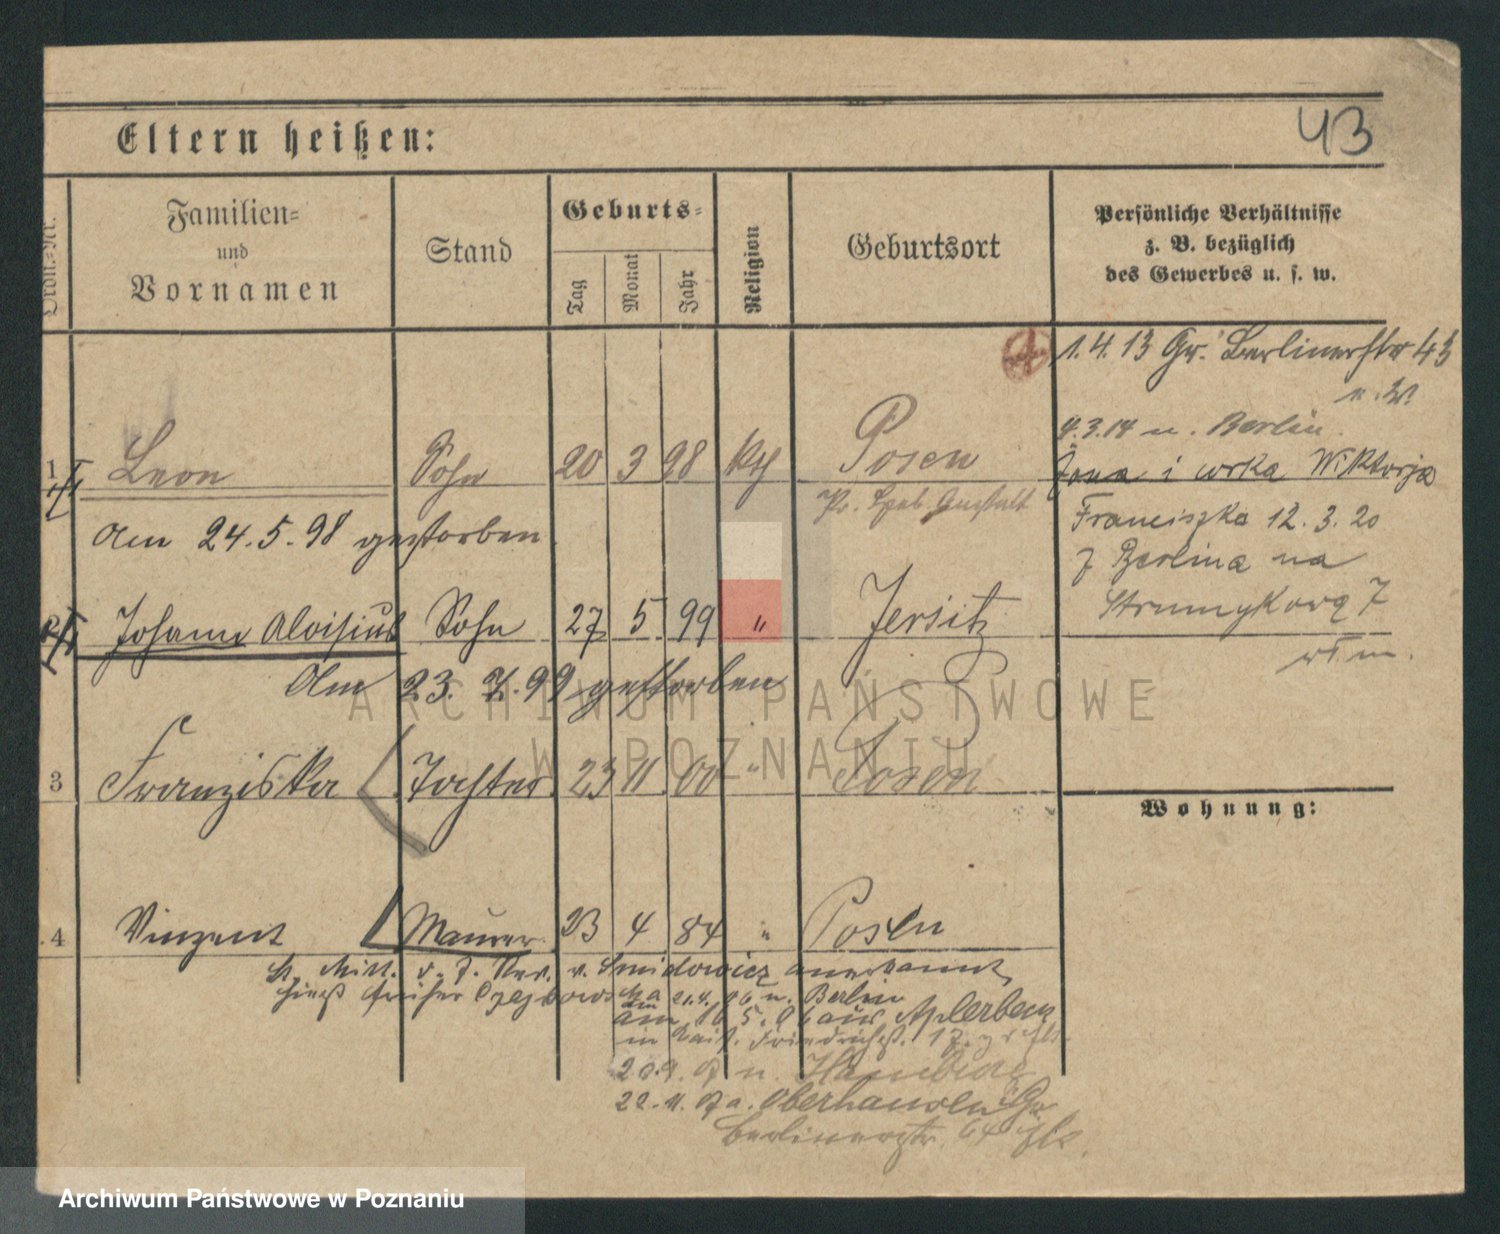 Eltern heißen:
43
Ordn.-Nr.
Familien-
und
Vornamen
Stand
Geburts-
Tag
Monat
Jahr
Religion
Geburtsort
Persönliche Verhältnisse
z. B. bezüglich
des Gewerbes u. s. w.
1.4.13 Gr. Berlinerstr 43
n. W.
4.3.14 n. Berlin
1 Leon Sohn 20 3 98 kth Posen
żona i córka Wiktorja
Franciszka 12.3.20
am 24.5.98 gestorben
z Berlina na
Strumykową 7
2 Johann Aloisius Sohn 27 5 99 " Jersitz
am 23.7.99 gestorben
3 Franziska Tochter 23 11 00 " Posen
Wohnung:
4 Vinzent Maurer 23 4 84 " Posen
v. Smidowicz anerkannt
hieß früher 21.4.06 n. Berlin
am 16 5.06 aus Aplerbeck
in
20.9.07 n. Hamburg
22.11.07 a. Oberhausen Gr
Berlinerstr. 64
ARCHIWUM PAŃSTWOWE
W POZNANIU
Archiwum Państwowe w Poznaniu